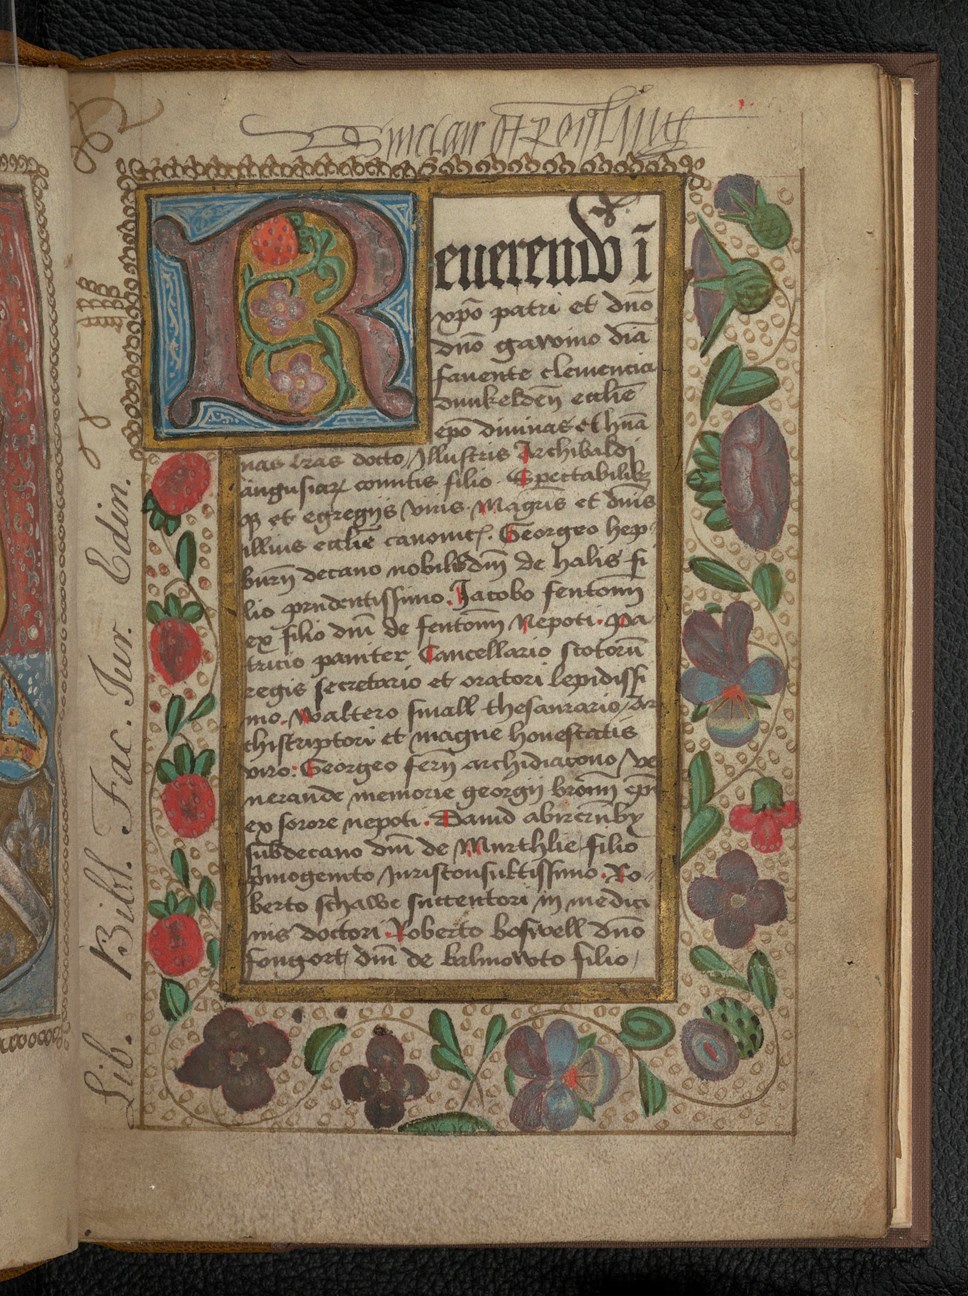 Sinclair of Roislin
Reuerendo ī
xp̄o patri et dn̄o
dn̄o gawino diā
fauente clemencia
dunkelden̄ eccl̄ie
ep̄o diuinas et hūa
nas l̄ras docto / Illustris Archibaldi
angusiaꝝ comitis filio . Spectabilibꝫ
qꝫ et egregijs viris . Magr̄is et dn̄is
illius eccl̄ie canonic̄ . Georgeo hep
burn̄ decano nobilis dn̄i de halis fi
lio prudentissimo . Jacobo fentoun̄
ex filio dn̄i de fentoun̄ Nepoti . Pa
tricio panter Cancellario scotorū
regis secretario et oratori lepidissi
mo . Waltero small thesaurario / Ar
chiscriptori et magne honestatis
viro : Georgeo fern̄ archidiacono / ve
nerande memorie georgij broun̄ ep̄i
ex sorore nepoti . Dauid abircrnby
subdecano dn̄i de Murthlie filio
p̄mogenito Jurisconsultissimo . Ro
berto schawe succentori in medici
nis doctori . Roberto boswell dn̄o
fongort / dn̄i de balmowto filio /
Lib. Bibl. Fac. Jur. Edin.